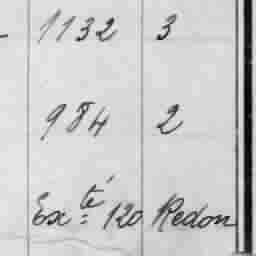 1132 3
984 2
Exté 120 Redon